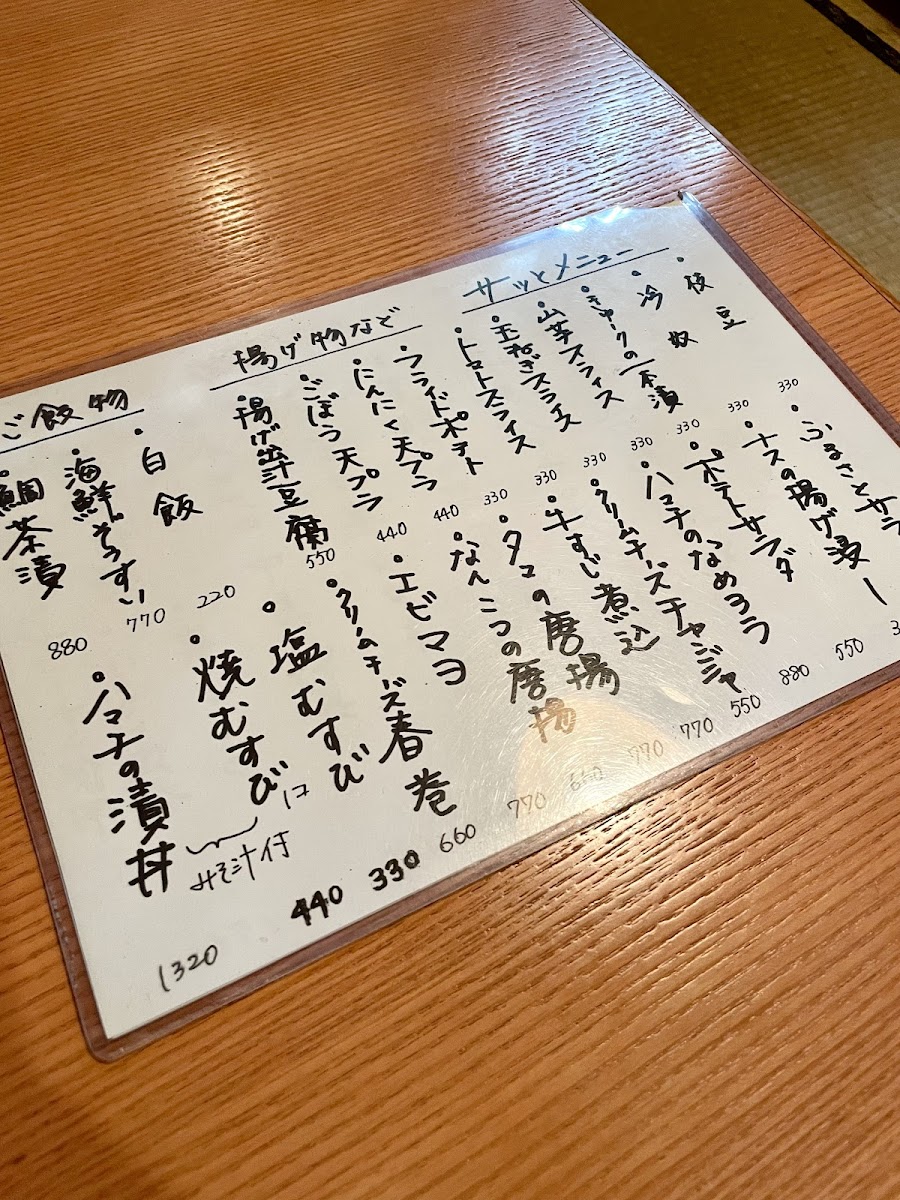 サッとメニュー
・枝豆 330
・冷奴 330
・きゅーりの一本漬 330
・山芋スライス 330
・玉ねぎスライス 330
・トマトスライス 330
揚げ物など
・フライドポテト 330
・にんにく天プラ 440
・ごぼう天プラ 440
・揚げ出汁豆腐 550
ご飯物
・白飯 220
・海鮮ぞうすい 770
・鯛茶漬 880
・ふるさとサラ
・ナスの揚げ浸し 3
・ポテトサラダ 550
・ハマチのなめろう 880
・クリームチーズチャンジャ 550
・牛すじ煮込 770
・タコの唐揚 770
・なんこつの唐揚 660
・エビマヨ 770
・クリームチーズ春巻 660
・塩むすび 330
・焼むすび 440
みそ汁付
・ハマチの漬丼 1320